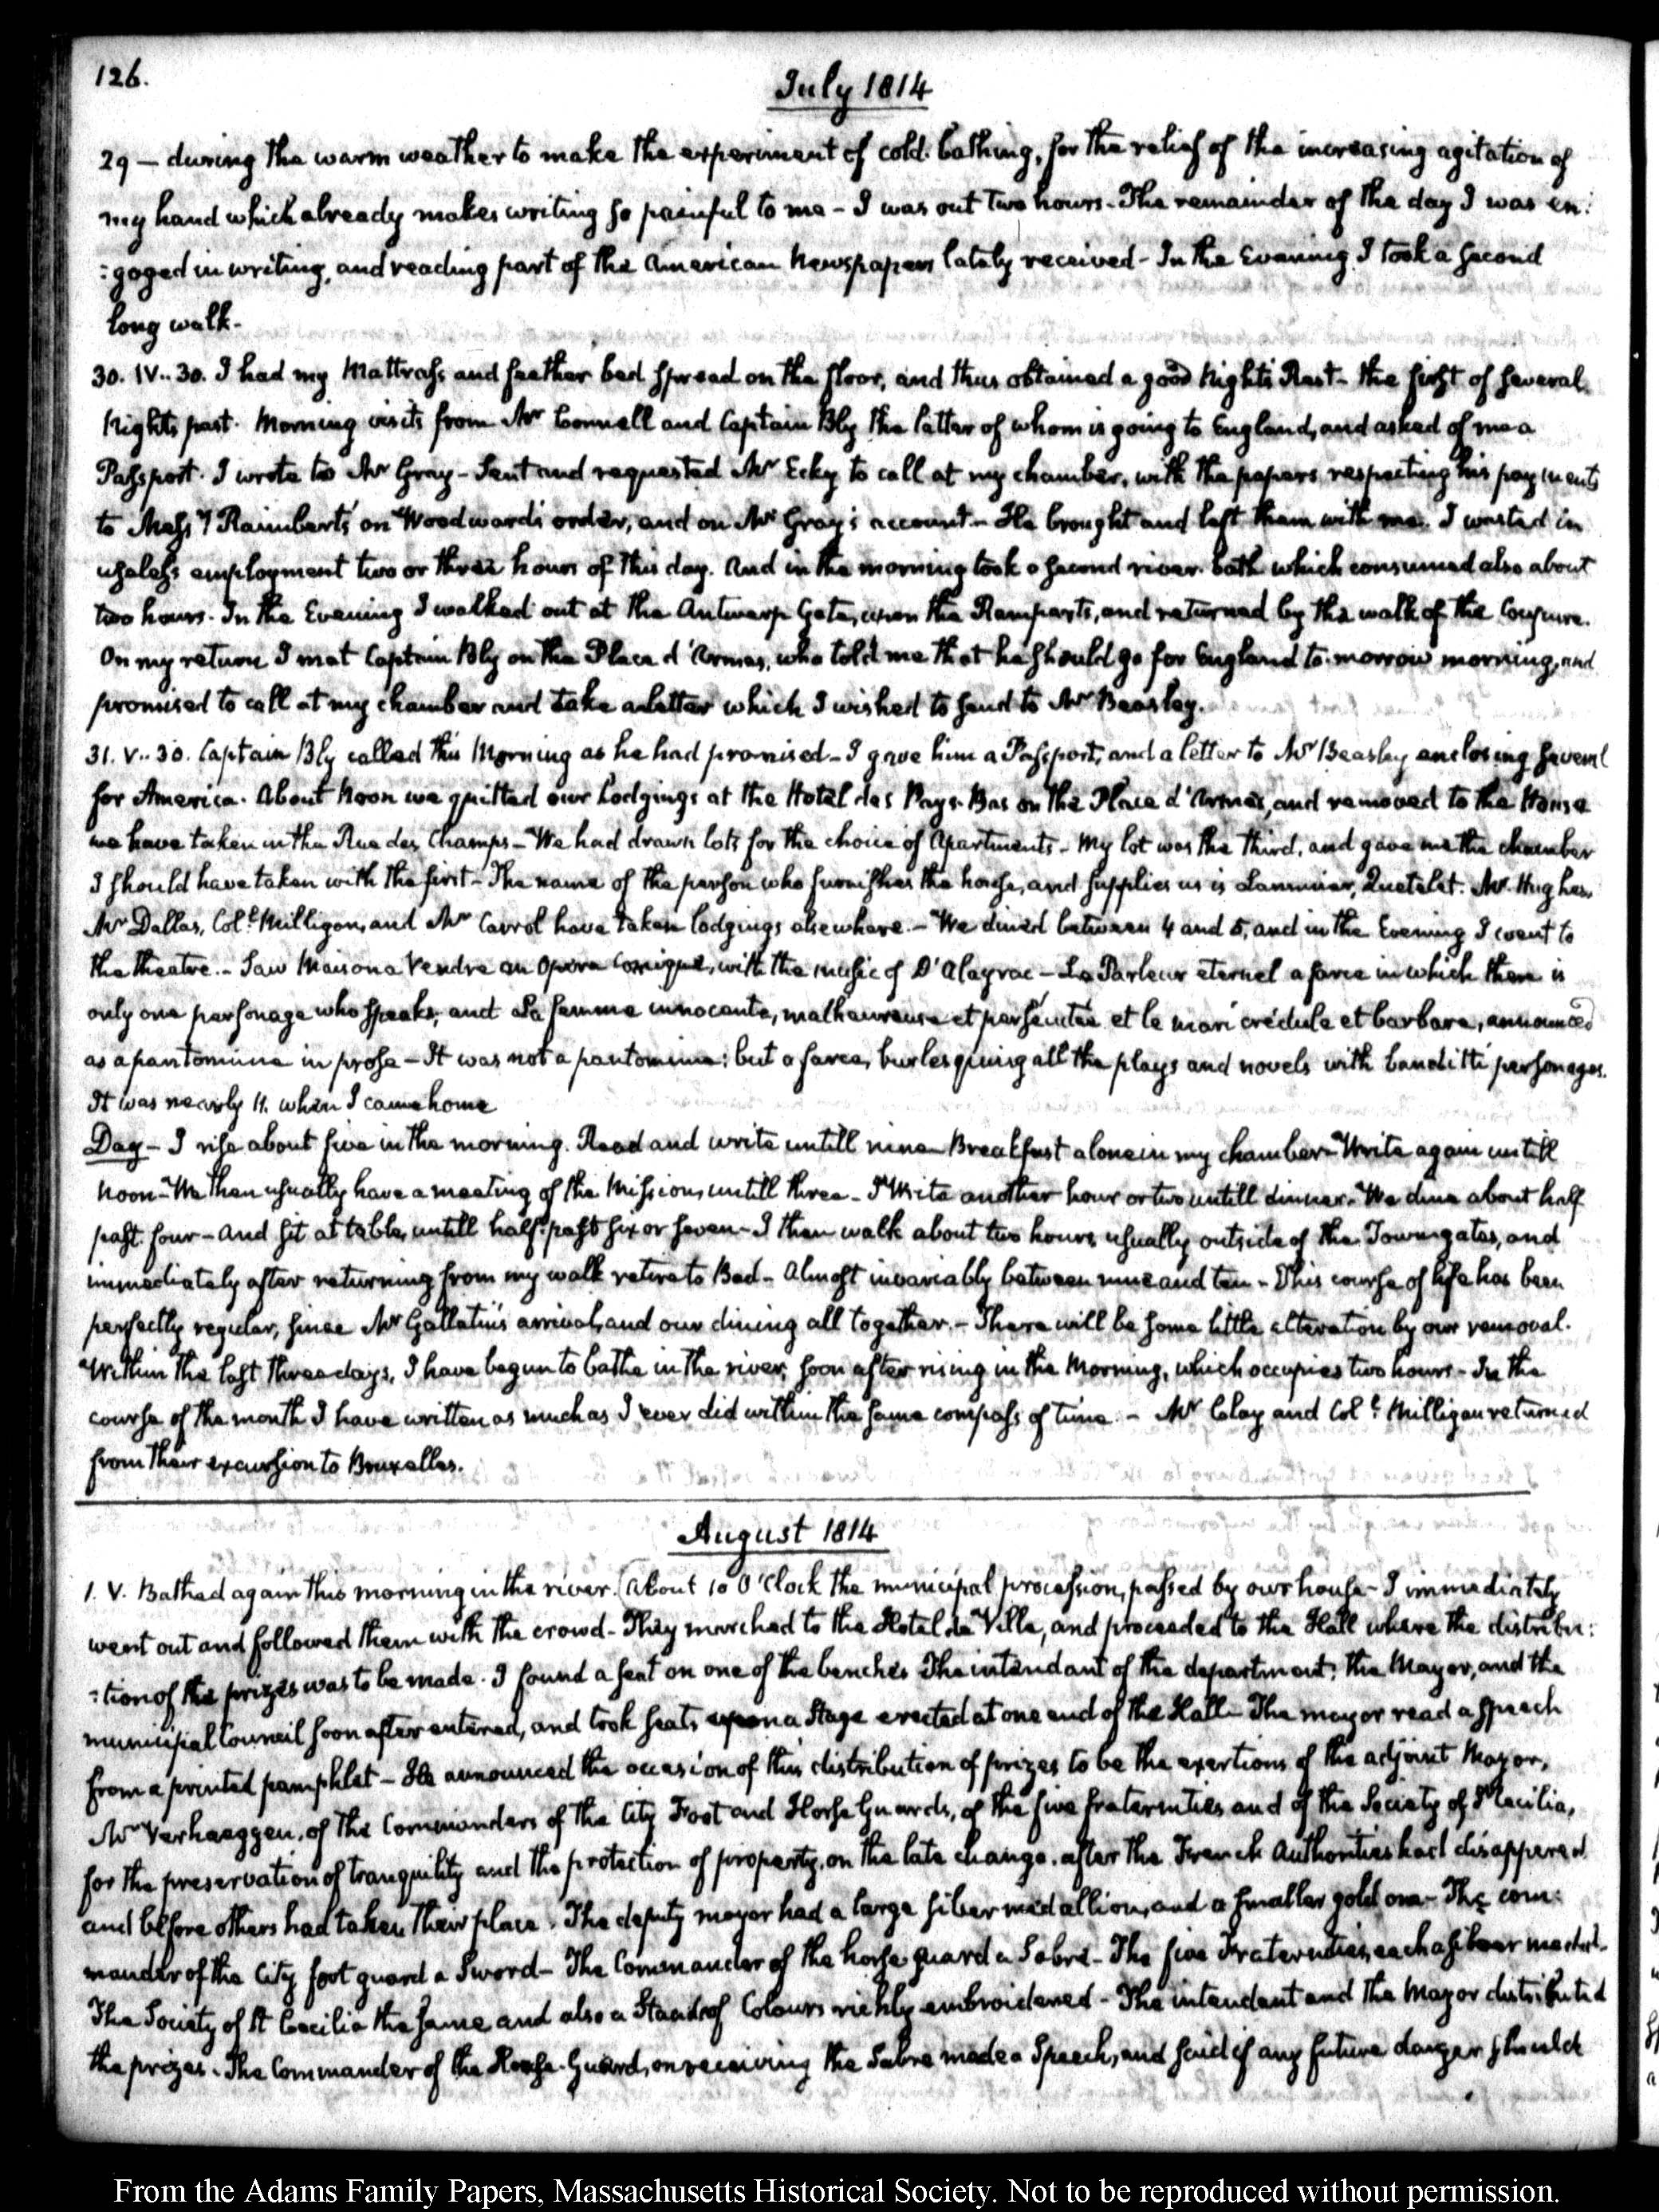 126.
July 1814
29 — during the warm weather to make the experiment of cold bathing, for the relief of the increasing agitation of
my hand which already makes writing so painful to me - I was out two hours - The remainder of the day I was en:
:gaged in writing, and reading part of the American Newspapers lately received - In the Evening I took a second
long walk -
30. IV.. 30. I had my Mattrass and feather bed spread on the floor, and thus obtained a good Night's Rest - the first of several
Nights past. Morning visits from Mr Connell and Captain Bly the latter of whom is going to England, and asked of me a
Passport. I wrote to Mr Gray - Sent and requested Mr Ecky to call at my chamber, with the papers respecting his payments
to Messrs Raimberts' on Woodward's order, and on Mr Gray's account - He brought and left them with me. I wasted in
useless employment two or three hours of this day. And in the morning took a second river bath which consumed also about
two hours. In the Evening I walked out at the Antwerp Gate, upon the Ramparts, and returned by the walk of the Coupure.
On my return I met Captain Bly on the Place d'Armes, who told me that he should go for England to-morrow morning, and
promised to call at my chamber and take a letter which I wished to send to Mr Beasley.
31. V.. 30. Captain Bly called this Morning as he had promised - I gave him a Passport, and a letter to Mr Beasley enclosing several
for America. About Noon we quitted our Lodgings at the Hotel des Pays-Bas on the Place d'Armes, and removed to the House
we have taken in the Rue des Champs - We had drawn lots for the choice of Apartments - My lot was the third, and gave me the chamber
I should have taken with the first - The name of the person who furnishes the house, and supplies us is Lannuier, Quetelet. Mr Hughes
Mr Dallas, Colt. Milligan, and Mr Carrol have taken lodgings elsewhere. - We dined between 4 and 5, and in the Evening I went to
the theatre. - Saw Maison a Vendre an Opera Comique, with the music of D'Alayrac - Le Parleur eternel a farce in which there is
only one personage who speaks, and La femme innocente, malheureuse et persécutée et le mari crédule et barbare, announced
as a pantomime in prose - It was not a pantomime; but a farce, burlesquing all the plays and novels with banditti personages.
It was nearly 11. when I came home
Day - I rise about five in the morning. Read and write untill nine - Breakfast alone in my chamber - Write again untill
Noon - We then usually have a meeting of the Mission, untill three - I write another hour or two untill dinner. We dine about half
past four - and sit at table, untill half-past six or seven - I then walk about two hours, usually outside of the Town-gates, and
immediately after returning from my walk retire to Bed - Almost invariably between nine and ten - This course of life has been
perfectly regular, since Mr Gallatin's arrival, and our dining all together. - There will be some little alteration by our removal.
Within the last three days, I have begun to bathe in the river, soon after rising in the Morning, which occupies two hours - In the
course of the month I have written as much as I ever did within the same compass of time. - Mr Clay and Colt. Milligan returned
from their excursion to Bruxelles.
August 1814
1. V. Bathed again this morning in the river. About 10 O'Clock the municipal procession, passed by our house - I immediately
went out and followed them with the crowd - They marched to the Hotel de Ville, and proceeded to the Hall where the distribu:
:tion of the prizes was to be made. I found a seat on one of the benches The intendant of the department, the Mayor, and the
municipal Council soon after entered, and took seats upon a Stage erected at one end of the Hall - The mayor read a speech
from a printed pamphlet - He announced the occasion of this distribution of prizes to be the exertions of the adjoint Mayor,
Mr Verhaeggen, of the Commanders of the City Foot and Horse Guards, of the five fraternities and of the Society of St Cecilia,
for the preservation of tranquility and the protection of property, on the late change, after the French Authorities had disappeared
and before others had taken their place. The deputy mayor had a large silver medallion, and a smaller gold one - The com:
mander of the City foot guard a Sword - The Commander of the horse guard a Sabre - The five Fraternities, each a silver medal.
The Society of St Cecilia the same and also a Stand of Colours richly embroidered - The intendant and the Mayor distributed
the prizes. The Commander of the Horse-Guard, on receiving the Sabre made a Speech, and said if any future danger should
From the Adams Family Papers, Massachusetts Historical Society. Not to be reproduced without permission.